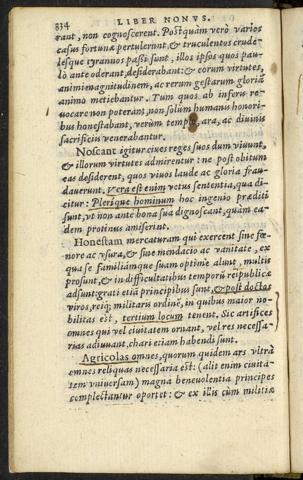 834 LIBER NONVS.
rant, non cognoscerent. Postquàm verò varios
casus fortunæ pertulerint, & truculentos crude-
lesque tyrannos passi sunt, illos ipsos quos pau-
lò ante oderant, desiderabant: & eorum virtutes,
animi magnitudinem, ac rerum gestarum gloriã
animo metiebantur. Tum quos ab inferis re-
uocare non poterãt, non solùm humanis honori-
bus honestabant, verùm templis, ara, ac diuinis
sacrificiis venerabantur.
Noscant igitur ciues reges suos dum viuunt,
& illorum virtutes admirentur: ne post obitum
eas desiderent, quos viuos laude ac gloria frau-
dauerunt. Vera est enim vetus sententia, qua di-
citur: Plerósque hominum hoc ingenio præditi
sunt, vt non ante bona sua dignoscant, quàm ea-
dem protinus amiserint.
Honestam mercaturam qui exercent sine fœ-
nore ac vsura, & sine mendacio ac vanitate, ex
qua se familiámque suam optimè alunt, multis
prosunt, & in difficultatibus temporũ reipublicæ
adsunt: grati etiã principibus sunt, & post doctos
viros, reiq; militaris ordinẽ, in quibus maior no-
bilitas est, tertium locum tenent. Sic artifices
omnes qui vel ciuitatem ornant, vel res necessa-
rias adiuuant, chari etiam habendi sunt.
Agricolas omnes, quorum quidem ars vltrà
omnes reliquas necessaria est: (alit enim ciuita-
tem vniuersam) magna beneuolentia principes
complectantur oportet: & ex illis cùm militiæ